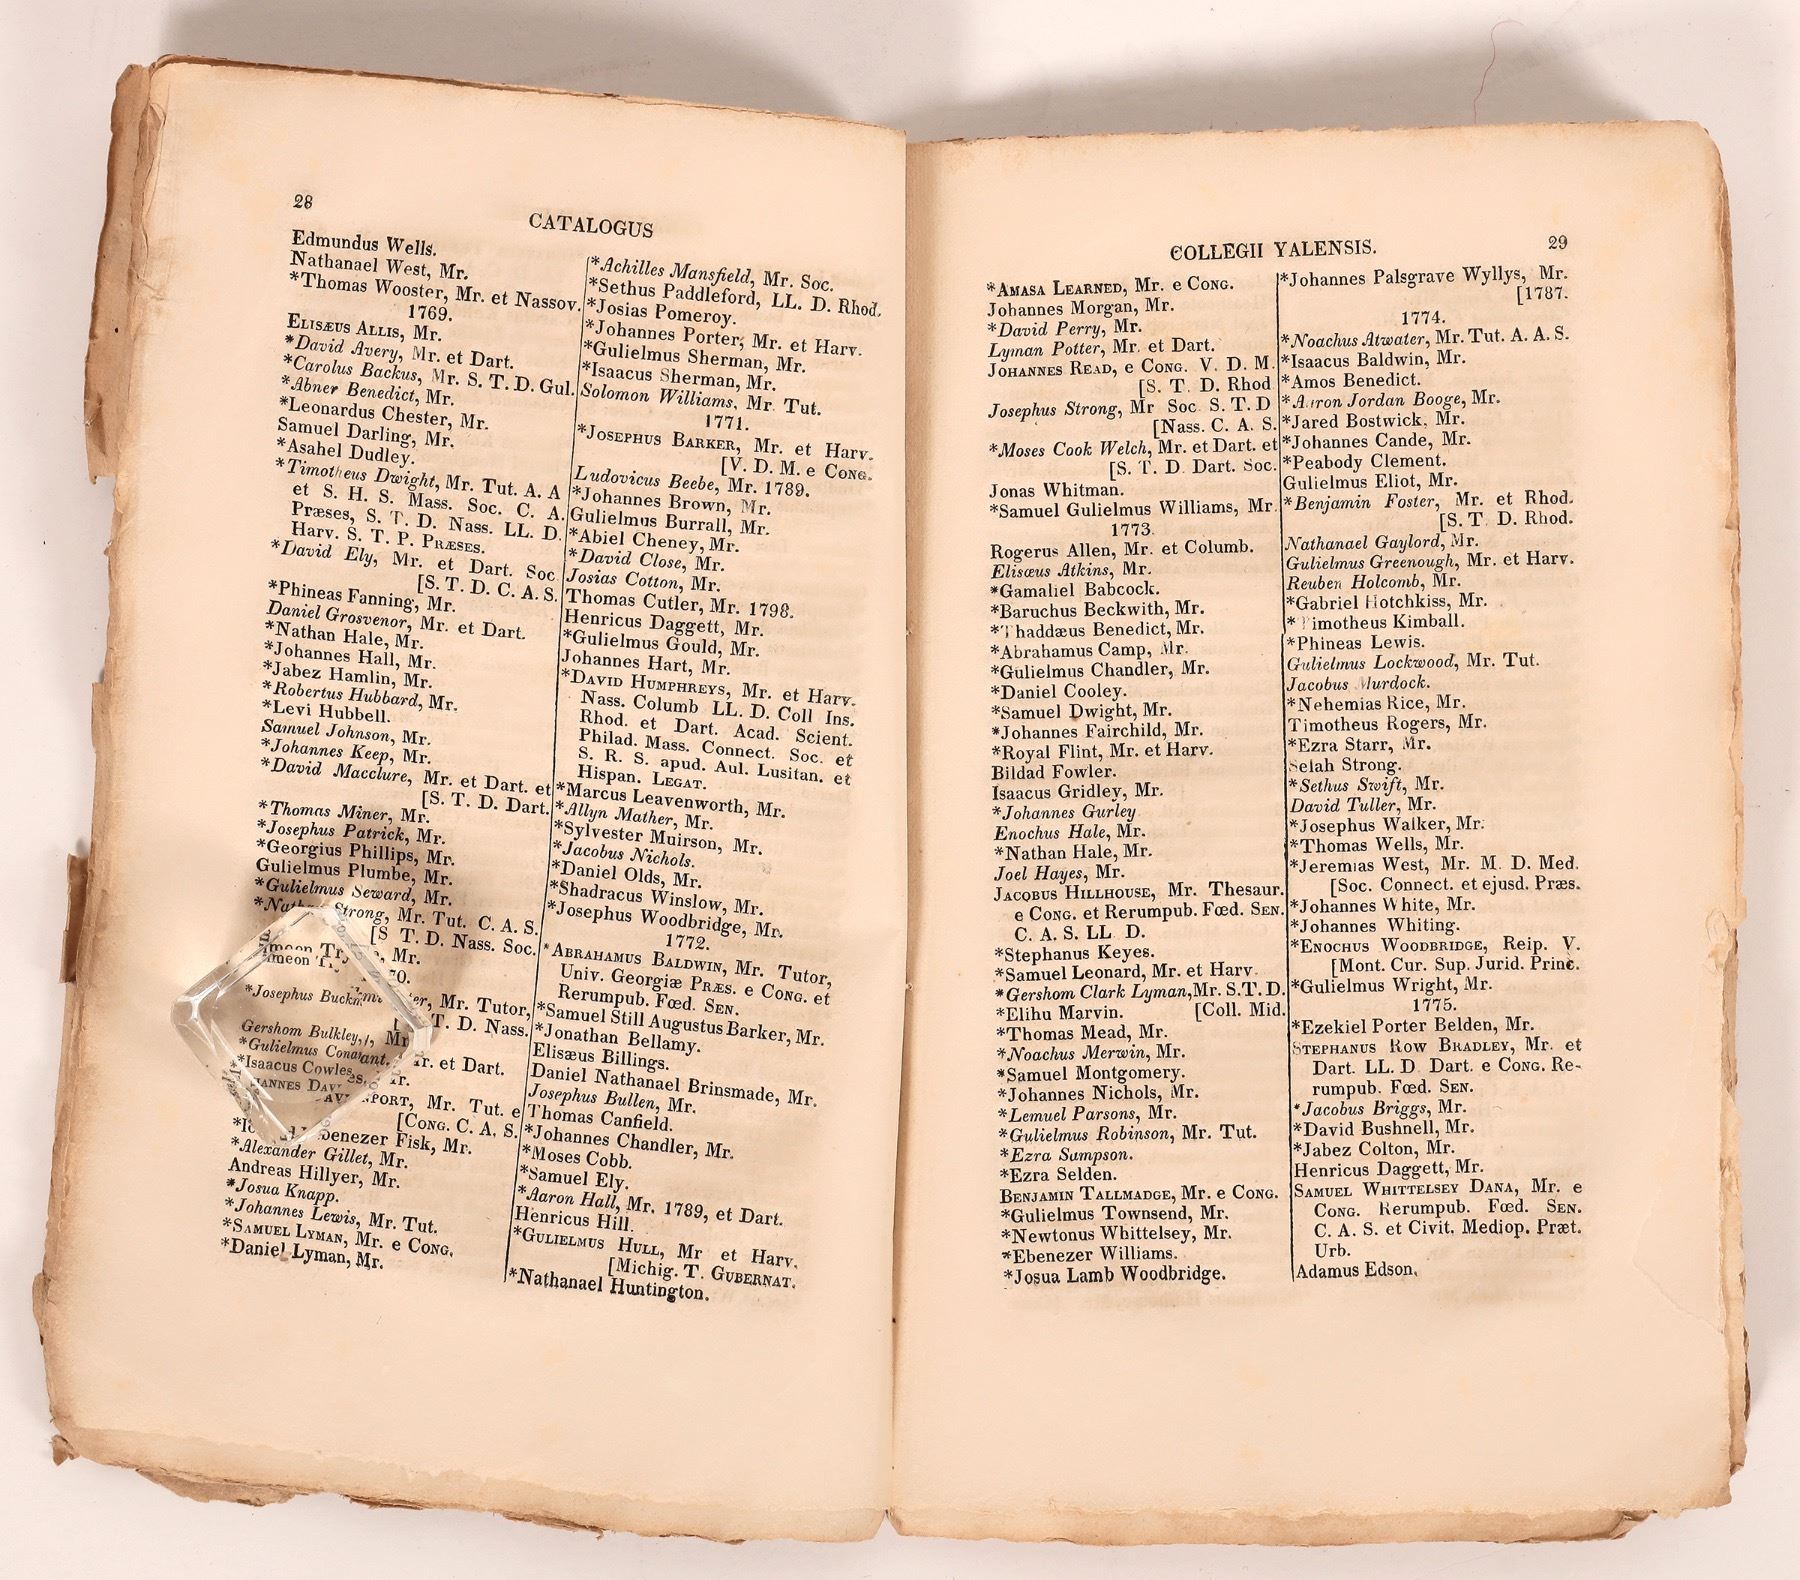 28
CATALOGUS
Edmundus Wells.
Nathanael West, Mr.
*Thomas Wooster, Mr. et Nassov.
1769.
ELISÆUS ALLIS, Mr.
*David Avery, Mr. et Dart.
*Carolus Backus, Mr. S. T. D. Gul.
*Abner Benedict, Mr.
*Leonardus Chester, Mr.
Samuel Darling, Mr.
*Asahel Dudley.
*Timotheus Dwight, Mr. Tut. A. A
et S. H. S. Mass. Soc. C. A.
Præses, S. T. D. Nass. LL. D.
Harv. S. T. P. PRÆSES.
*David Ely, Mr. et Dart. Soc
[S. T. D. C. A. S.
*Phineas Fanning, Mr.
Daniel Grosvenor, Mr. et Dart.
*Nathan Hale, Mr.
*Johannes Hall, Mr.
*Jabez Hamlin, Mr.
*Robertus Hubbard, Mr.
*Levi Hubbell.
Samuel Johnson, Mr.
*Johannes Keep, Mr.
*David Macclure, Mr. et Dart. et
[S. T. D. Dart.
*Thomas Miner, Mr.
*Josephus Patrick, Mr.
*Georgius Phillips, Mr.
Gulielmus Plumbe, Mr.
*Gulielmus Seward, Mr.
Strong, Mr. Tut. C. A. S.
[S T. D. Nass. Soc.
Mr.
*Josephus Mr. Tutor,
T. D. Nass.
Gershom Bulkley,
*Gulielmus et Dart.
*Isaacus Cowles
Mr. Tut. e
[CONG. C. A. S.
Fisk, Mr.
*Alexander Gillet, Mr.
Andreas Hillyer, Mr.
*Josua Knapp.
*Johannes Lewis, Mr. Tut.
*SAMUEL LYMAN, Mr. e CONG.
*Daniel Lyman, Mr.
*Achilles Mansfield, Mr. Soc.
*Sethus Paddleford, LL. D. Rhod.
*Josias Pomeroy.
*Johannes Porter, Mr. et Harv.
*Gulielmus Sherman, Mr.
*Isaacus Sherman, Mr.
Solomon Williams, Mr. Tut.
1771.
*JOSEPHUS BARKER, Mr. et Harv.
[V. D. M. e CONG.
Ludovicus Beebe, Mr. 1789.
*Johannes Brown, Mr.
Gulielmus Burrall, Mr.
*Abiel Cheney, Mr.
*David Close, Mr.
Josias Cotton, Mr.
Thomas Cutler, Mr. 1798.
Henricus Daggett, Mr.
*Gulielmus Gould, Mr.
Johannes Hart, Mr.
*DAVID HUMPHREYS, Mr. et Harv.
Nass. Columb LL. D. Coll Ins.
Rhod. et Dart. Acad. Scient.
Philad. Mass. Connect. Soc. et
S. R. S. apud. Aul. Lusitan. et
Hispan. LEGAT.
*Marcus Leavenworth, Mr.
*Allyn Mather, Mr.
*Sylvester Muirson, Mr.
*Jacobus Nichols.
*Daniel Olds, Mr.
*Shadracus Winslow, Mr.
*Josephus Woodbridge, Mr.
1772.
*ABRAHAMUS BALDWIN, Mr. Tutor,
Univ. Georgiæ PRÆS. e CONG. et
Rerumpub. FŒD. SEN.
*Samuel Still Augustus Barker, Mr.
*Jonathan Bellamy.
Elisæus Billings.
Daniel Nathanael Brinsmade, Mr.
Josephus Bullen, Mr.
Thomas Canfield.
*Johannes Chandler, Mr.
*Moses Cobb.
*Samuel Ely.
*Aaron Hall, Mr. 1789, et Dart.
Henricus Hill.
*GULIELMUS HULL, Mr et Harv.
[Michig. T. GUBERNAT.
*Nathanael Huntington.
COLLEGII YALENSIS.
29
*AMASA LEARNED, Mr. e CONG.
Johannes Morgan, Mr.
*David Perry, Mr.
Lyman Potter, Mr. et Dart.
JOHANNES READ, e CONG. V. D. M.
[S. T. D. Rhod
Josephus Strong, Mr Soc S. T. D
[Nass. C. A. S.
*Moses Cook Welch, Mr. et Dart. et
[S. T. D. Dart. Soc.
Jonas Whitman.
*Samuel Gulielmus Williams, Mr.
1773.
Rogerus Allen, Mr. et Columb.
Elisæus Atkins, Mr.
*Gamaliel Babcock.
*Baruchus Beckwith, Mr.
*Thaddæus Benedict, Mr.
*Abrahamus Camp, Mr.
*Gulielmus Chandler, Mr.
*Daniel Cooley.
*Samuel Dwight, Mr.
*Johannes Fairchild, Mr.
*Royal Flint, Mr. et Harv.
Bildad Fowler.
Isaacus Gridley, Mr.
*Johannes Gurley
Enochus Hale, Mr.
*Nathan Hale, Mr.
Joel Hayes, Mr.
JACOBUS HILLHOUSE, Mr. Thesaur.
e CONG. et Rerumpub. FŒD. SEN.
C. A. S. LL D.
*Stephanus Keyes.
*Samuel Leonard, Mr. et Harv.
*Gershom Clark Lyman, Mr. S.T. D.
*Elihu Marvin. [Coll. Mid.
*Thomas Mead, Mr.
*Noachus Merwin, Mr.
*Samuel Montgomery.
*Johannes Nichols, Mr.
*Lemuel Parsons, Mr.
*Gulielmus Robinson, Mr. Tut.
*Ezra Sampson.
*Ezra Selden.
BENJAMIN TALLMADGE, Mr. e CONG.
*Gulielmus Townsend, Mr.
*Newtonus Whittelsey, Mr.
*Ebenezer Williams.
*Josua Lamb Woodbridge.
*Johannes Palsgrave Wyllys, Mr.
[1787.
1774.
*Noachus Atwater, Mr. Tut. A. A. S.
*Isaacus Baldwin, Mr.
*Amos Benedict.
*Aaron Jordan Booge, Mr.
*Jared Bostwick, Mr.
*Johannes Cande, Mr.
*Peabody Clement.
Gulielmus Eliot, Mr.
*Benjamin Foster, Mr. et Rhod.
[S. T. D. Rhod.
Nathanael Gaylord, Mr.
Gulielmus Greenough, Mr. et Harv.
Reuben Holcomb, Mr.
*Gabriel Hotchkiss, Mr.
*Timotheus Kimball.
*Phineas Lewis.
Gulielmus Lockwood, Mr. Tut.
Jacobus Murdock.
*Nehemias Rice, Mr.
Timotheus Rogers, Mr.
*Ezra Starr, Mr.
Selah Strong.
*Sethus Swift, Mr.
David Tuller, Mr.
*Josephus Walker, Mr.
*Thomas Wells, Mr.
*Jeremias West, Mr. M. D. Med.
[Soc. Connect. et ejusd. Præs.
*Johannes White, Mr.
*Johannes Whiting.
*ENOCHUS WOODBRIDGE, Reip. V.
[Mont. Cur. Sup. Jurid. Princ.
*Gulielmus Wright, Mr.
1775.
*Ezekiel Porter Belden, Mr.
STEPHANUS ROW BRADLEY, Mr. et
Dart. LL. D Dart. e CONG. Re-
rumpub. FŒD. SEN.
*Jacobus Briggs, Mr.
*David Bushnell, Mr.
*Jabez Colton, Mr.
Henricus Daggett, Mr.
SAMUEL WHITTELSEY DANA, Mr. e
CONG. Rerumpub. FŒD. SEN.
C. A. S. et Civit. Mediop. Præt.
Urb.
Adamus Edson.